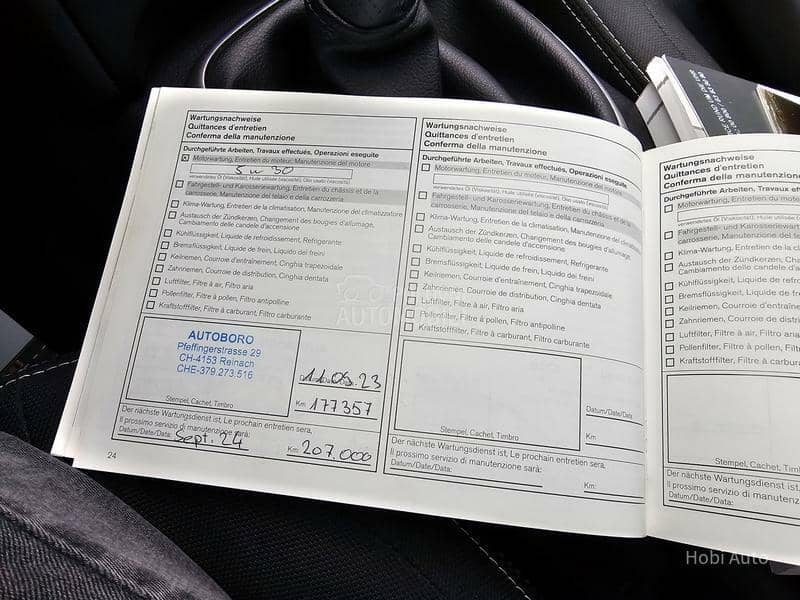 Wartungsnachweise
Quittances d'entretien
Conferma della manutenzione
Durchgeführte Arbeiten, Travaux effectués, Operazioni eseguite
Motorwartung, Entretien du moteur, Manutenzione del motore
5w30
verwendetes Öl (Viskosität), Huile utilisée (viscosité), Olio usato (viscosità)
Fahrgestell- und Karosseriewartung, Entretien du châssis et de la
carrosserie, Manutenzione del telaio e della carrozzeria
Klima-Wartung, Entretien de la climatisation, Manutenzione del climatizzatore
Austausch der Zündkerzen, Changement des bougies d'allumage,
Cambiamento delle candele d'accensione
Kühlflüssigkeit, Liquide de refroidissement, Refrigerante
Bremsflüssigkeit, Liquide de frein, Liquido dei freini
Keilriemen, Courroie d'entraînement, Cinghia trapezoidale
Zahnriemen, Courroie de distribution, Cinghia dentata
Luftfilter, Filtre à air, Filtro aria
Pollenfilter, Filtre à pollen, Filtro antipolline
Kraftstofffilter, Filtre à carburant, Filtro carburante
AUTOBORO
Pfeffingerstrasse 29
CH-4153 Reinach
CHE-379.273.516
Stempel, Cachet, Timbro
11.09.23
Km 177357
Der nächste Wartungsdienst ist, Le prochain entretien sera,
Il prossimo servizio di manutenzione sarà:
Datum/Date/Data: Sept. 24
Km: 207.000
24
Wartungsnachweise
Quittances d'entretien
Conferma della manutenzione
Durchgeführte Arbeiten, Travaux effectués, Operazioni eseguite
Motorwartung, Entretien du moteur, Manutenzione del motore
verwendetes Öl (Viskosität), Huile utilisée (viscosité), Olio usato (viscosità)
Fahrgestell- und Karosseriewartung, Entretien du châssis et de la
carrosserie, Manutenzione del telaio e della carrozzeria
Klima-Wartung, Entretien de la climatisation, Manutenzione del
Austausch der Zündkerzen, Changement des bougies d'allumage,
Cambiamento delle candele d'accensione
Kühlflüssigkeit, Liquide de refroidissement, Refrigerante
Bremsflüssigkeit, Liquide de frein, Liquido dei freini
Keilriemen, Courroie d'entraînement, Cinghia trapezoidale
Zahnriemen, Courroie de distribution, Cinghia dentata
Luftfilter, Filtre à air, Filtro aria
Pollenfilter, Filtre à pollen, Filtro antipolline
Kraftstofffilter, Filtre à carburant, Filtro carburante
Stempel, Cachet, Timbro
Datum/Date/Data
Km
Der nächste Wartungsdienst ist, Le prochain entretien sera,
Il prossimo servizio di manutenzione sarà:
Datum/Date/Data:
Km:
Wartungsnachweise
Quittances d'entretien
Conferma della manutenzione
Durchgeführte Arbeiten, Travaux
Motorwartung, Entretien du moteur
verwendetes Öl (Viskosität), Huile utilisée
Fahrgestell- und
carrosserie, Manutenzione del telaio
Klima-Wartung, Entretien de la
Austausch der Zündkerzen,
Cambiamento delle candele
Kühlflüssigkeit, Liquide de
Bremsflüssigkeit, Liquide de frein
Keilriemen, Courroie
Zahnriemen, Courroie de
Luftfilter, Filtre à air, Filtro aria
Pollenfilter, Filtre à pollen, Filtro
Kraftstofffilter, Filtre à
Stempel, Cachet
Der nächste Wartungsdienst ist,
Il prossimo servizio di
Datum/Date/Data:
AUTO
Hobi Auto